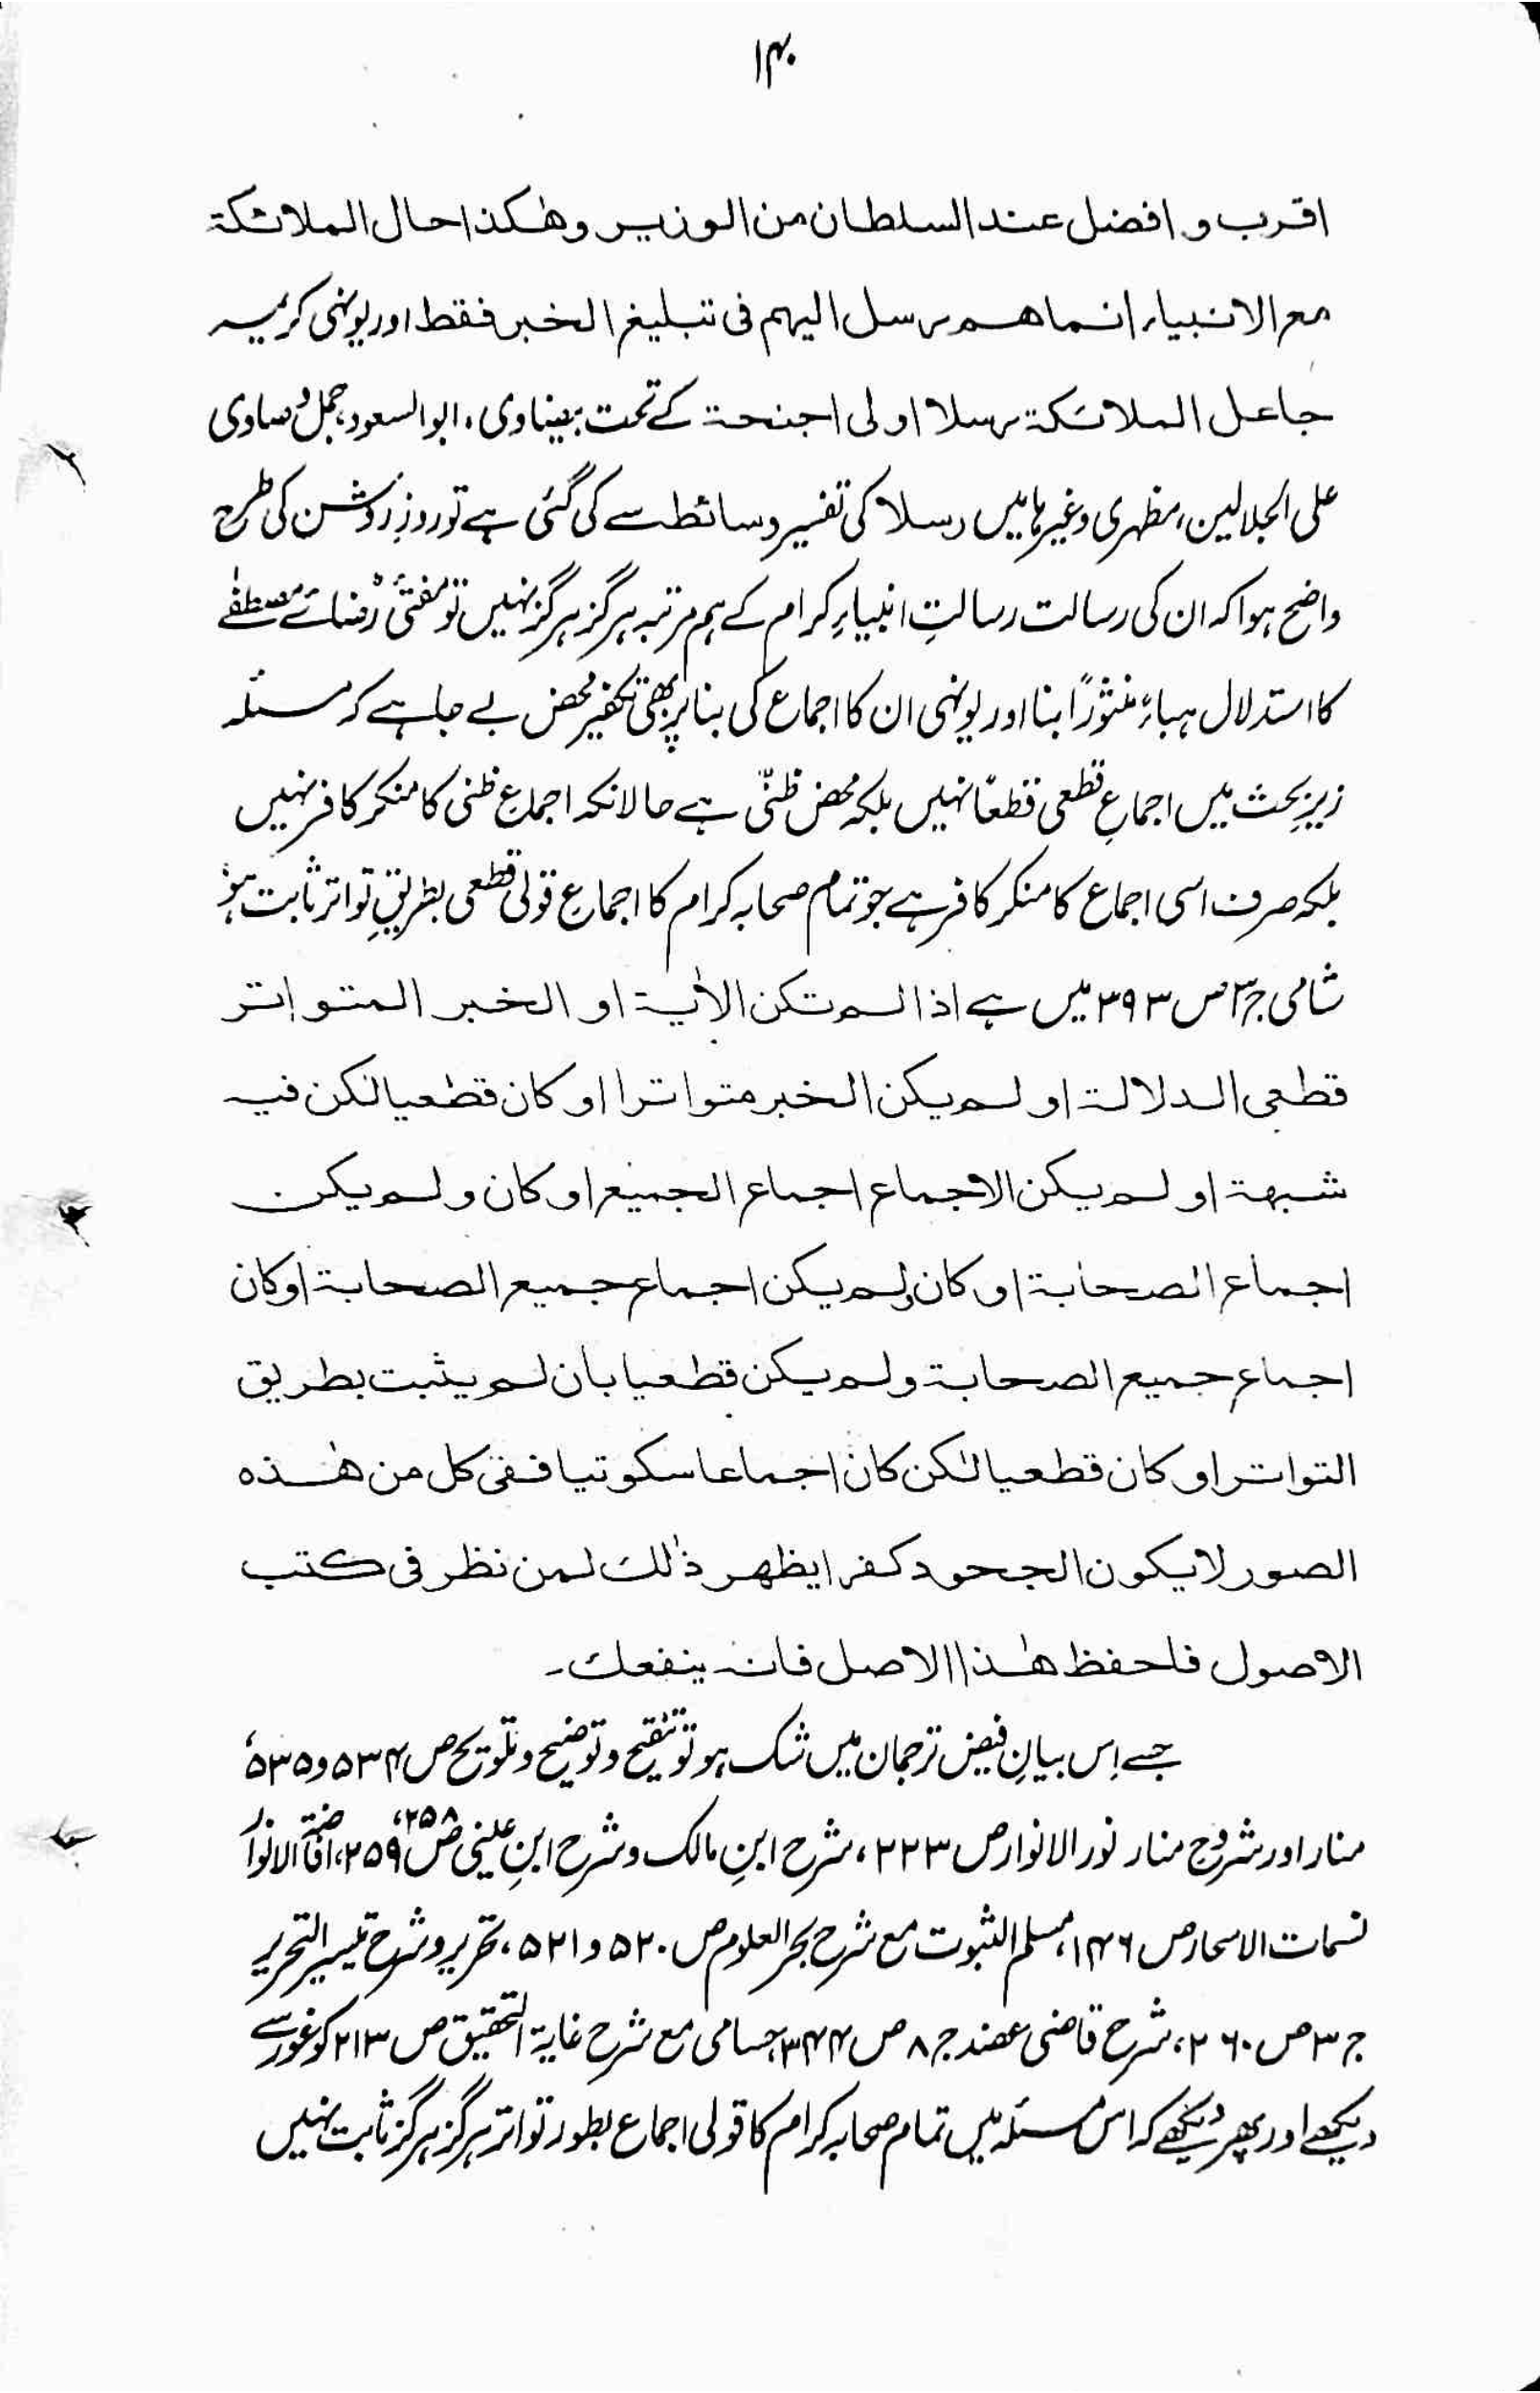 ۱۴۰
اقرب و افضل عند السلطان من الوزیر وھٰکذا حال الملائکۃ
مع الانبیاء انما ھم رسل الیہم فی تبلیغ الخبر فقط اور یونہی کریمہ
جاعل الملائکۃ رسلا اولی اجنحۃ کے تحت بیضاوی، ابوالسعود، جمل و صاوی
علی الجلالین، مظہری وغیرہا میں رسلا کی تفسیر وسائط سے کی گئی ہے تو روزِ روشن کی طرح
واضح ہوا کہ ان کی رسالت رسالتِ انبیاءِ کرام کے ہم مرتبہ ہرگز ہرگز نہیں تو مفتئ رضائے مصطفٰے
کا استدلال ہباءً منثورًا بنا اور یونہی ان کا اجماع کی بنا پر بھی تکفیر محض بے جا ہے کہ مسئلہ
زیرِ بحث میں اجماعِ قطعی قطعًا نہیں بلکہ محض ظنّی ہے حالانکہ اجماع ظنی کا منکر کافر نہیں
بلکہ صرف اسی اجماع کا منکر کافر ہے جو تمام صحابہ کرام کا اجماع قولی قطعی بطریقِ تواتر ثابت ہو،
شامی ج۳ ص ۳۹۳ میں ہے اذا لم تکن الاٰیۃ او الخبر المتواتر
قطعی الدلالۃ او لم یکن الخبر متواترا او کان قطعیا لکن فیہ
شبھۃ او لم یکن الاجماع اجماع الجمیع او کان و لم یکن
اجماع الصحابۃ او کان ولم یکن اجماع جمیع الصحابۃ او کان
اجماع جمیع الصحابۃ ولم یکن قطعیا بان لم یثبت بطریق
التواتر او کان قطعیا لٰکن کان اجماعا سکوتیا ففی کل من ھٰذہ
الصور لا یکون الجحود کفرا یظھر ذٰلک لمن نظر فی کتب
الاصول فاحفظ ھٰذا الاصل فانہ ینفعک۔
جسے اِس بیانِ فیض ترجمان میں شک ہو تو تنقیح و توضیح و تلویح ص ۵۳۴ و ۵۳۵،
منار اور شروح منار نور الانوار ص ۲۲۳، شرح ابنِ مالک و شرح ابنِ عینی ص ۲۵۸، ۲۵۹، افاضۃ الانوار
نسمات الاسحار ص ۱۴۶، مسلم الثبوت مع شرح بحر العلوم ص ۵۲۰ و ۵۲۱، تحریر و شرح تیسیر التحریر
ج ۳ ص ۲۶۰، شرح قاضی عضد ج ۸ ص ۳۴۴، حسامی مع شرح غایۃ التحقیق ص ۲۱۳ کو غور سے
دیکھے اور پھر دیکھے کہ اس مسئلہ میں تمام صحابہ کرام کا قولی اجماع بطور تواتر ہرگز ہرگز ثابت نہیں